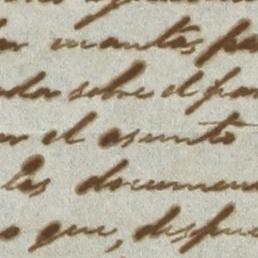 mantas pa
sobre el par
el asunto
los documen
que, despue